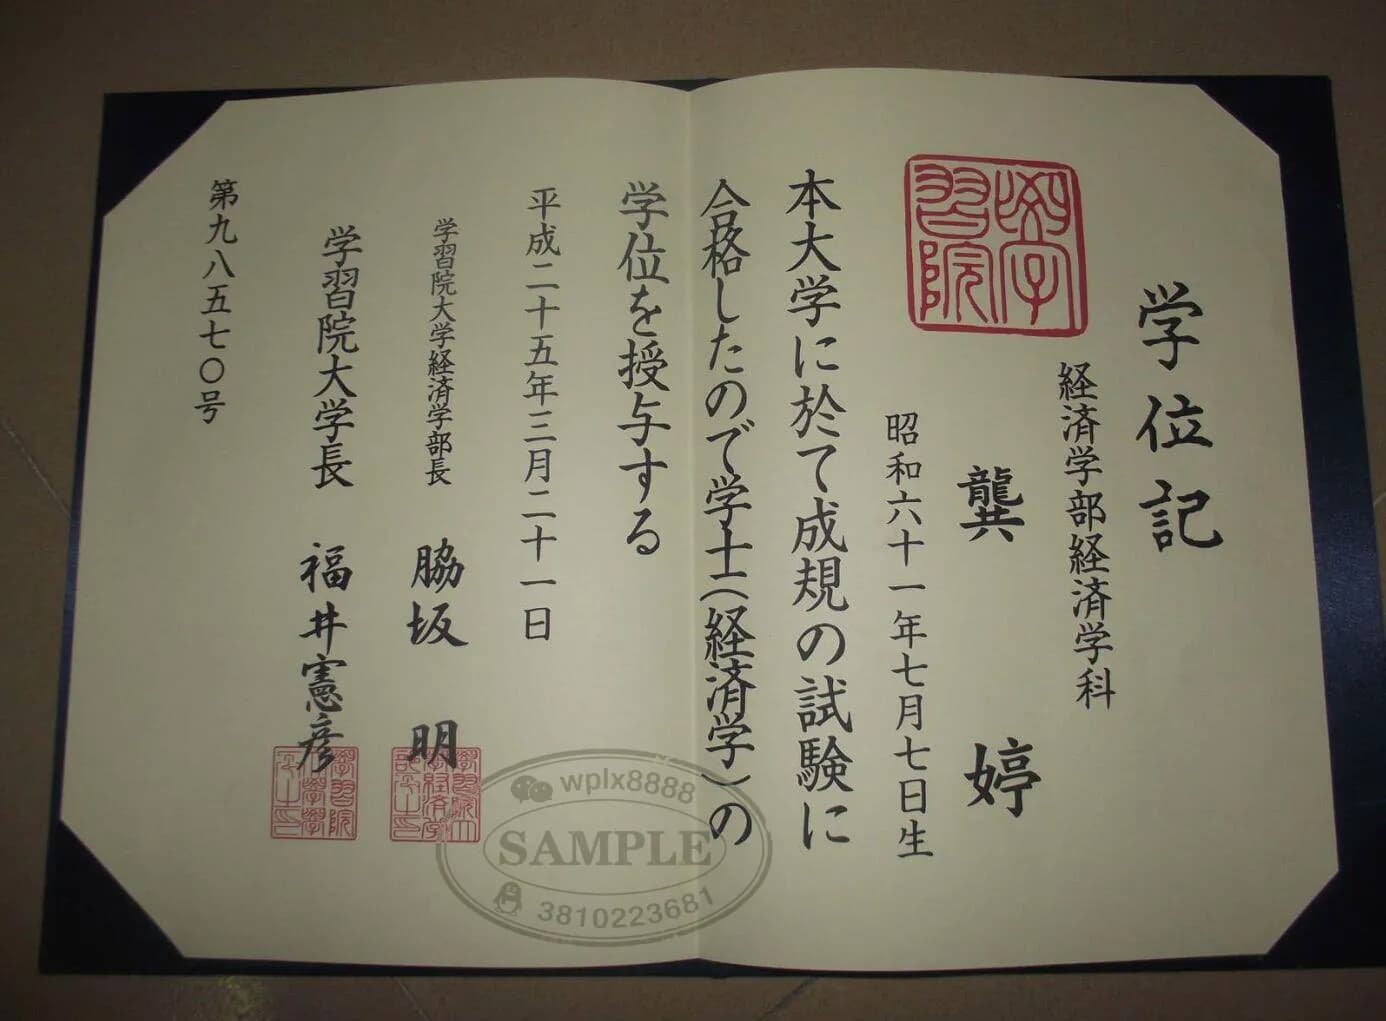 学位記
経済学部経済学科
龔 婷
昭和六十一年七月七日生
本大学に於て成規の試験に
合格したので学士(経済学)の
学位を授与する
平成二十五年三月二十一日
学習院大学経済学部長 脇坂 明
学習院大学長 福井憲彦
第九八五七〇号
學習院
wplx8888
SAMPLE
3810223681